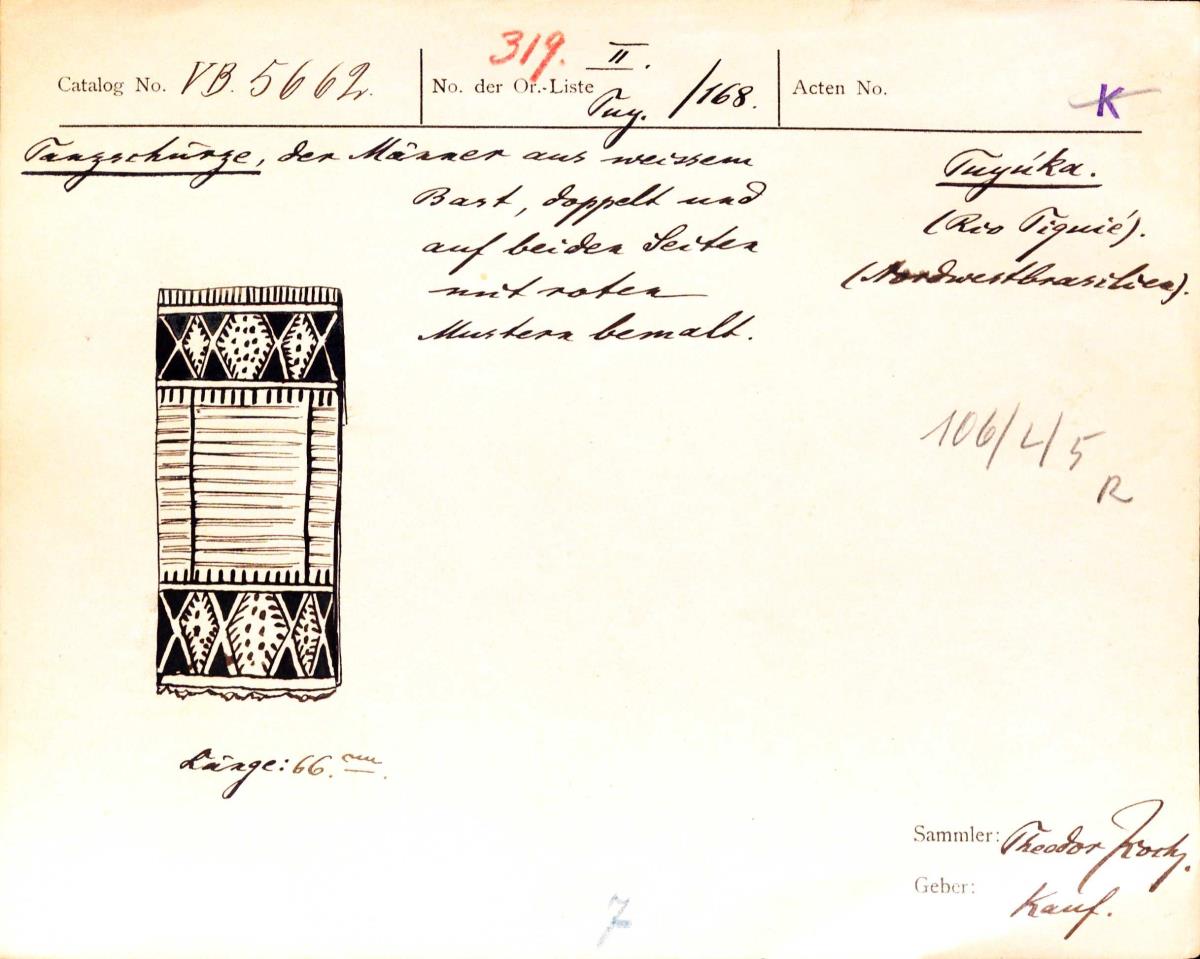 319. II.
Catalog No. VB. 5662. No. der Or.-Liste Tuy. /168. Acten No. K
Tanzschürze, der Männer aus weissem
Bast, doppelt und
auf beiden Seiten
mit roten
Mustern bemalt.
Tuyúka.
(Rio Tiquié).
(Nordwestbrasilien).
106/4/5
R
Länge: 66. cm.
Sammler: Theodor Koch.
Geber: Kauf.
7